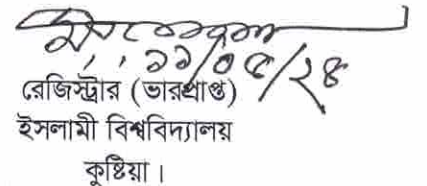 ১১/০৫/২৪
রেজিস্ট্রার (ভারপ্রাপ্ত)
ইসলামী বিশ্ববিদ্যালয়
কুষ্টিয়া।